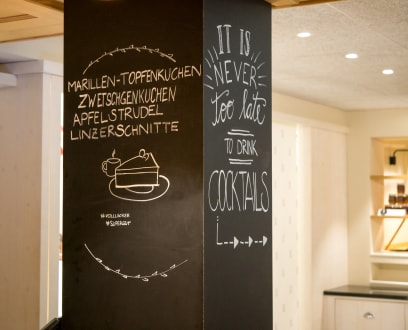 MARILLEN-TOPFENKUCHEN
ZWETSCHGENKUCHEN
APFELSTRUDEL
LINZERSCHNITTE
#VOLLLECKER
#SUPERGUT
IT IS
NEVER
Too late
TO DRINK
COCKTAILS